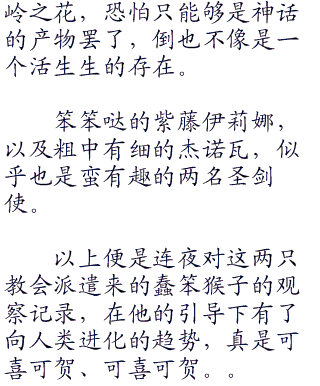 岭之花，恐怕只能够是神话
的产物罢了，倒也不像是一
个活生生的存在。
笨笨哒的紫藤伊莉娜，
以及粗中有细的杰诺瓦，似
乎也是蛮有趣的两名圣剑
使。
以上便是连夜对这两只
教会派遣来的蠢笨猴子的观
察记录，在他的引导下有了
向人类进化的趋势，真是可
喜可贺、可喜可贺。。